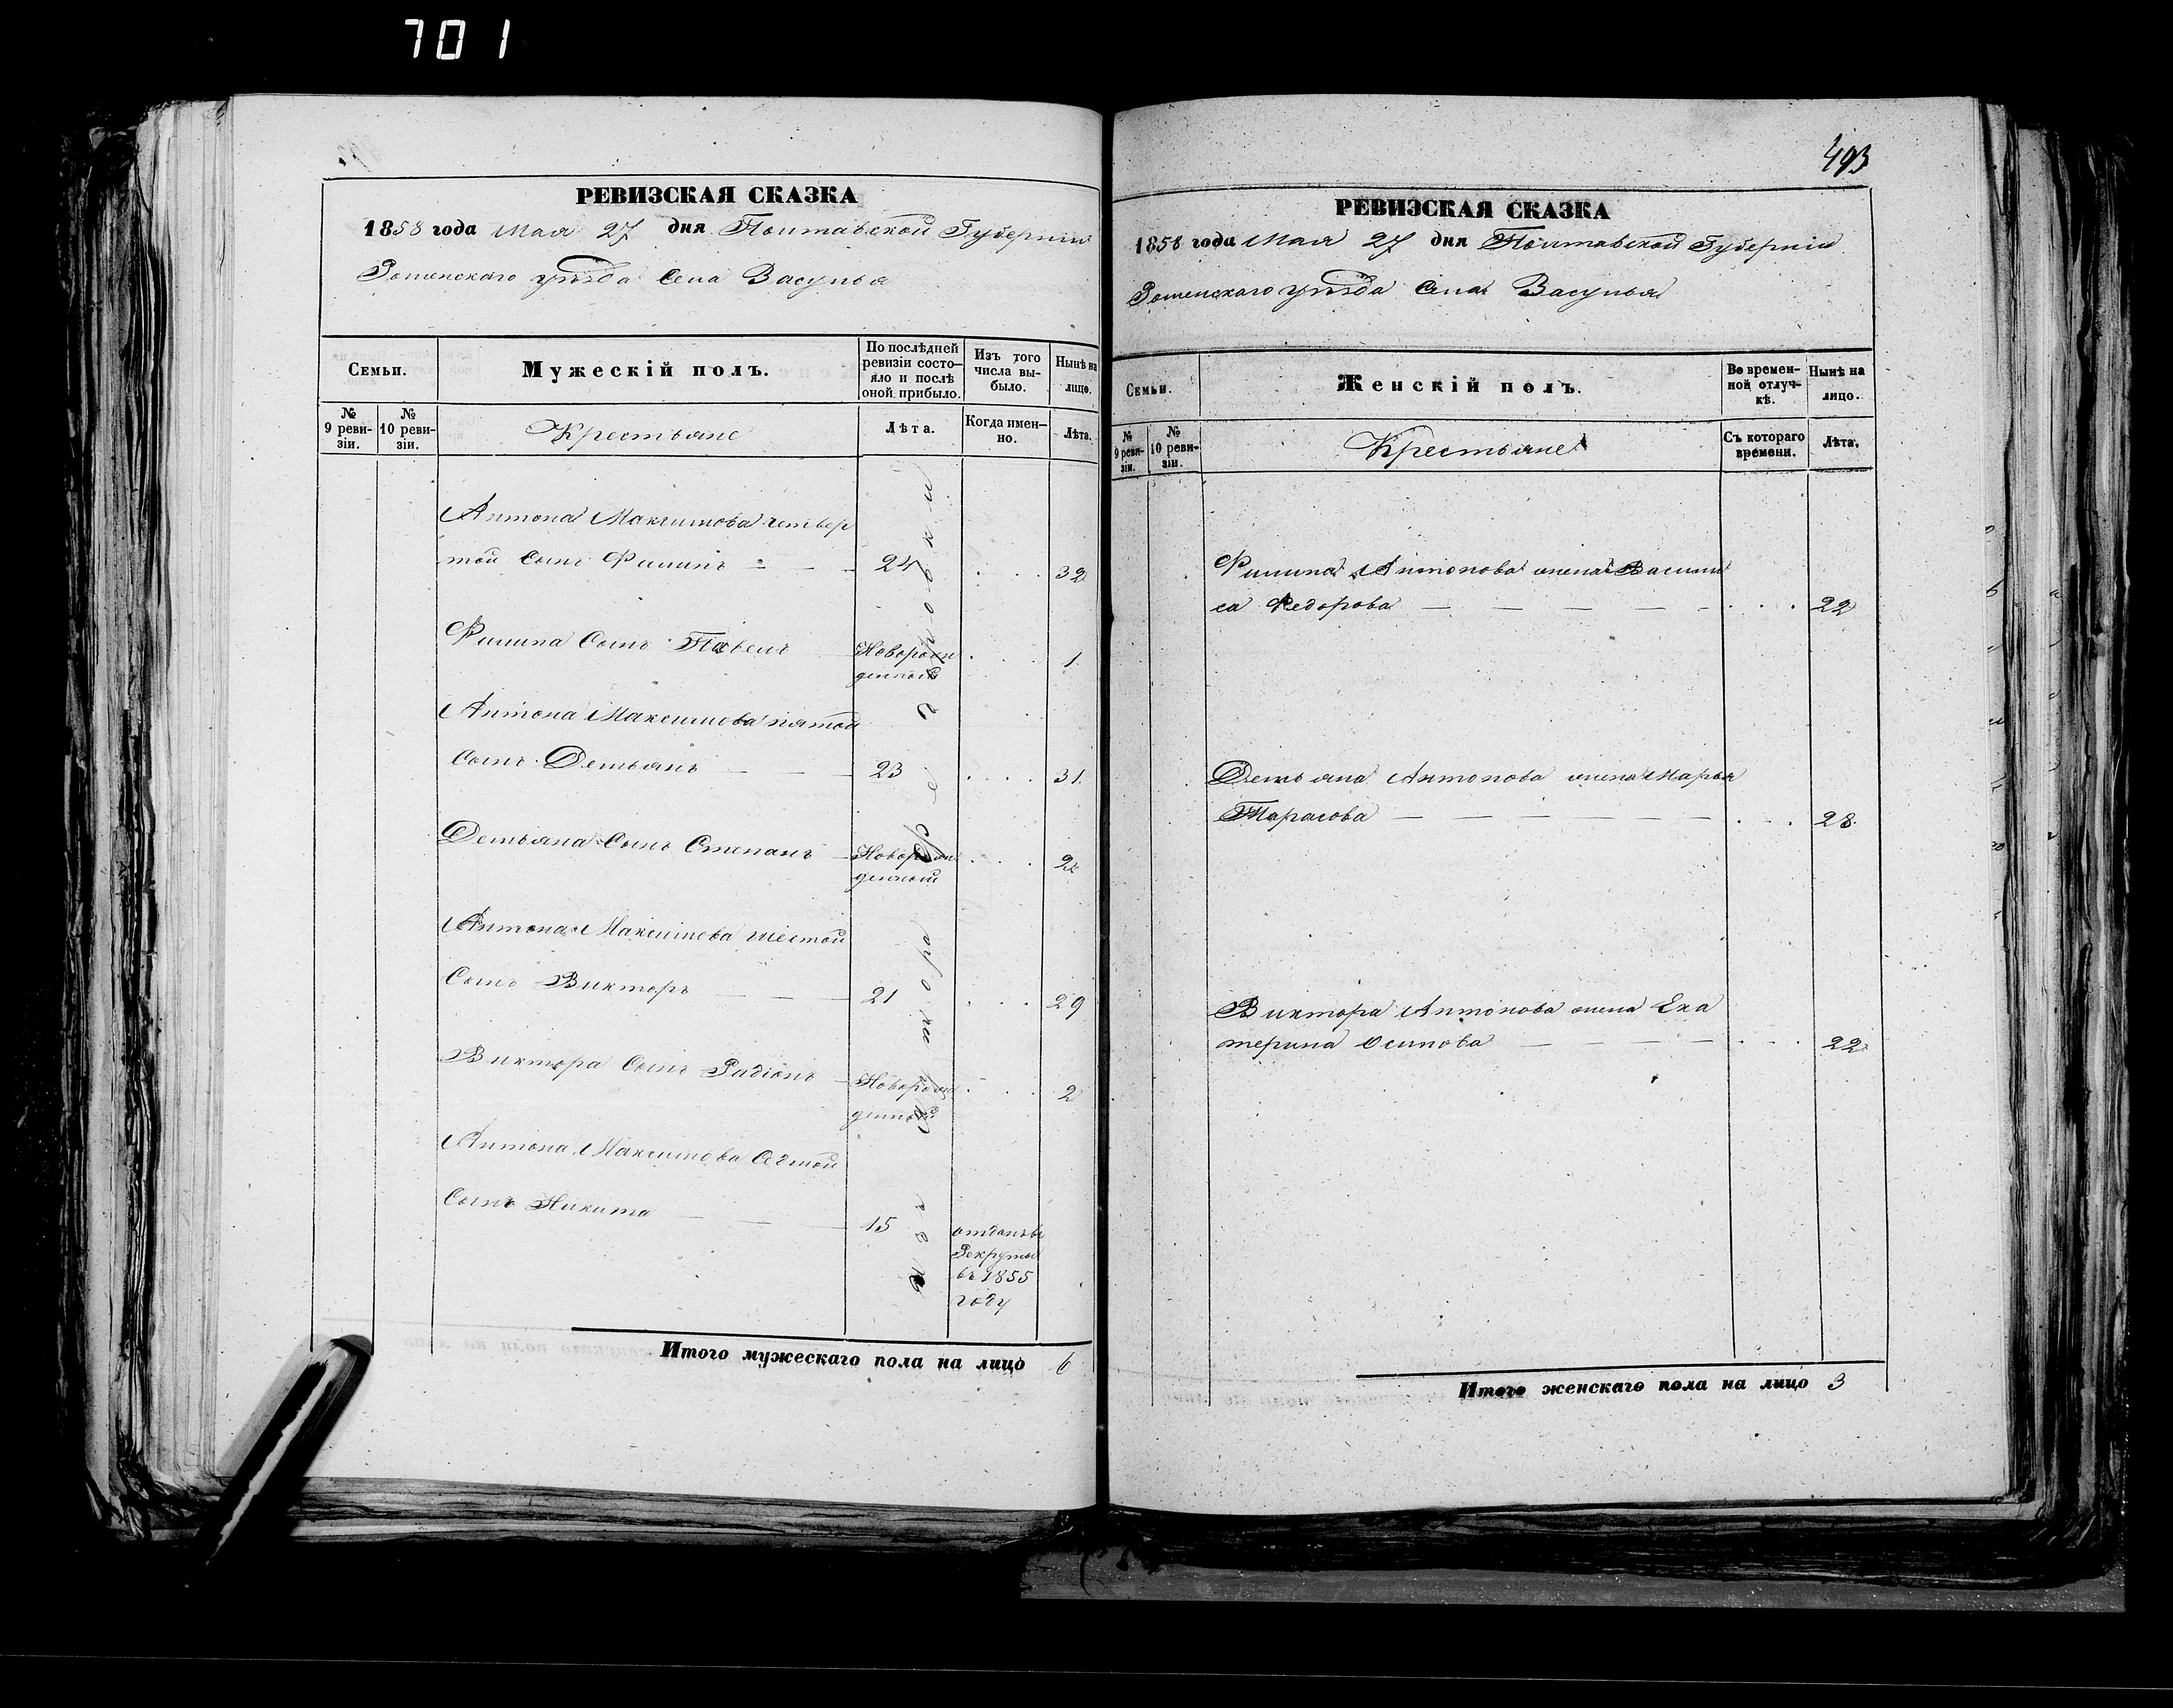 701
РЕВИЗСКАЯ СКАЗКА
1858 года Мая 27 дня Полтавской Губерніи
Роменскаго уѣзда Села Засулья
Семьи.
Мужескій полъ.
По послѣдней ревизіи состо-
яло и послѣ
оной прибыло.
Изъ того
числа вы-
было.
Нынѣ на
лицо.
№
9 реви-
зіи.
№
10 реви-
зіи.
Крестьяне
Лѣта.
Когда имен-
но.
Лѣта.
Антона Максимова четвер
той Сынъ Филипъ — — — 24 . . . 32
Филипа Сынъ Павелъ Новорож
денной . . . 1
Антона Максимова пятой
Сынъ Демьянъ — — — 23 . . . 31
Демьяна Сынъ Степанъ — Новорож
денной . . . 2
Антона Максимова шестой
Сынъ Викторъ — — — 21 . . . 29
Виктора Сынъ Радіонъ — Новорож
денной . . . 2
Антона Максимова Седмой
Сынъ Никита — — — 15 отданъ въ
Рекруты
въ 1855
году
Итого мужескаго пола на лицо 6
493
РЕВИЗСКАЯ СКАЗКА
1858 года Мая 27 дня Полтавской Губерніи
Роменскаго уѣзда Села Засулья
Семьи.
Женскій полъ.
Во времен-
ной отлуч-
кѣ.
Нынѣ на
лицо.
№
9 реви-
зіи.
№
10 реви-
зіи.
Крестьяне
Съ котораго
времени.
Лѣта.
Филипа Антонова жена Васили
са Федорова — — — — — . . . 22
Демьяна Антонова жена Марья
Тарасова — — — — — . . . 28
Виктора Антонова жена Ека
терина Осипова — — — — . . . 22
Итого женскаго пола на лицо 3